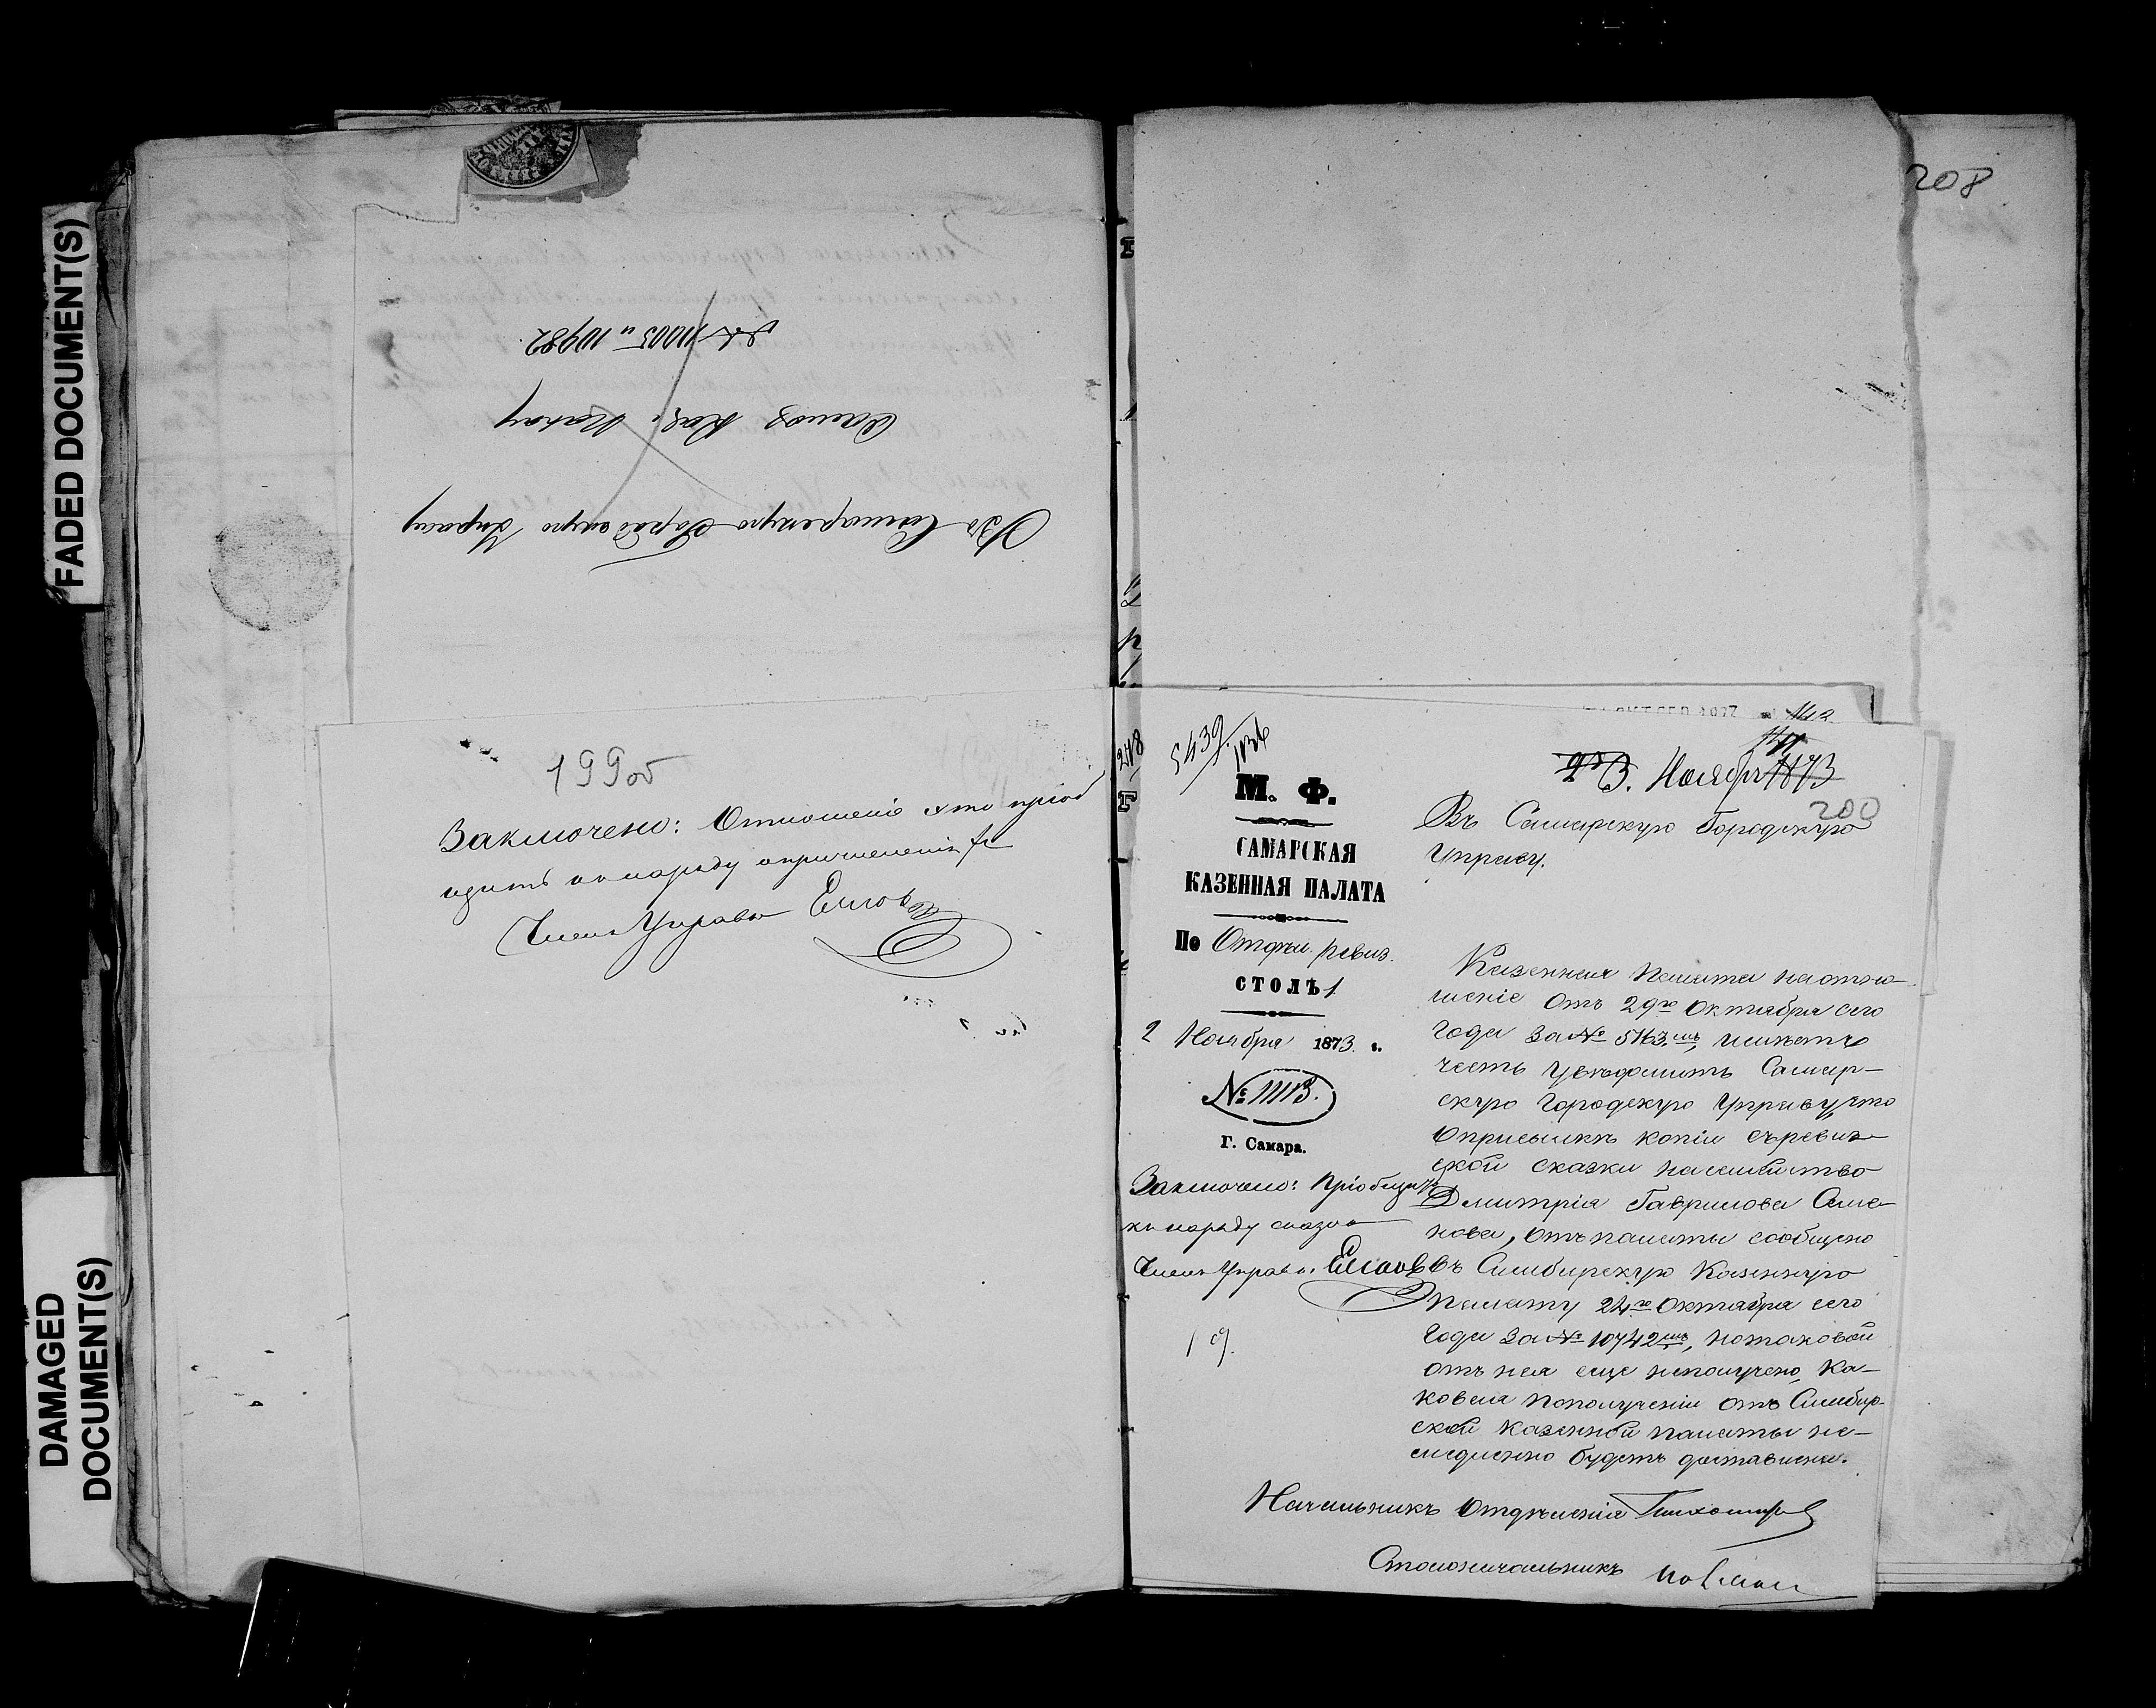 FADED DOCUMENT(S)
DAMAGED
DOCUMENT(S)
208
№№ 11005 и 10982
Въ Самарскую Городскую Управу
199об
Заключено: Отношеніе это пріоб
щить къ наряду о причисленіи
Членъ Управы
5439
М. Ф.
САМАРСКАЯ
КАЗЕННАЯ ПАЛАТА
По Отдѣл. ревиз.
СТОЛЪ 1
2 Ноября 1873 г.
№ 11113.
Г. Самара.
Заключено: Пріобщить
къ наряду
Членъ Управы
3. Ноября 1873
200
Въ Самарскую Городскую
Управу.
Казенная Палата на отно-
шеніе отъ 29го Октября сего
года за № 5163мъ, имѣетъ
честь увѣдомить Самар-
скую Городскую Управу, что
о присылкѣ копіи съ ревиз-
ской сказки на семейство
Дмитрія Гаврилова Симо-
нова, отъ палаты сообщено
въ Симбирскую Казенную
Палату 24го Октября сего
года за № 10742мъ, но таковой
отъ нея еще не получено, ка-
ковая по полученіи отъ Симбир-
ской Казенной палаты не-
медленно будетъ доставлена.
Начальникъ Отдѣленія Тихомиров
Столоначальникъ